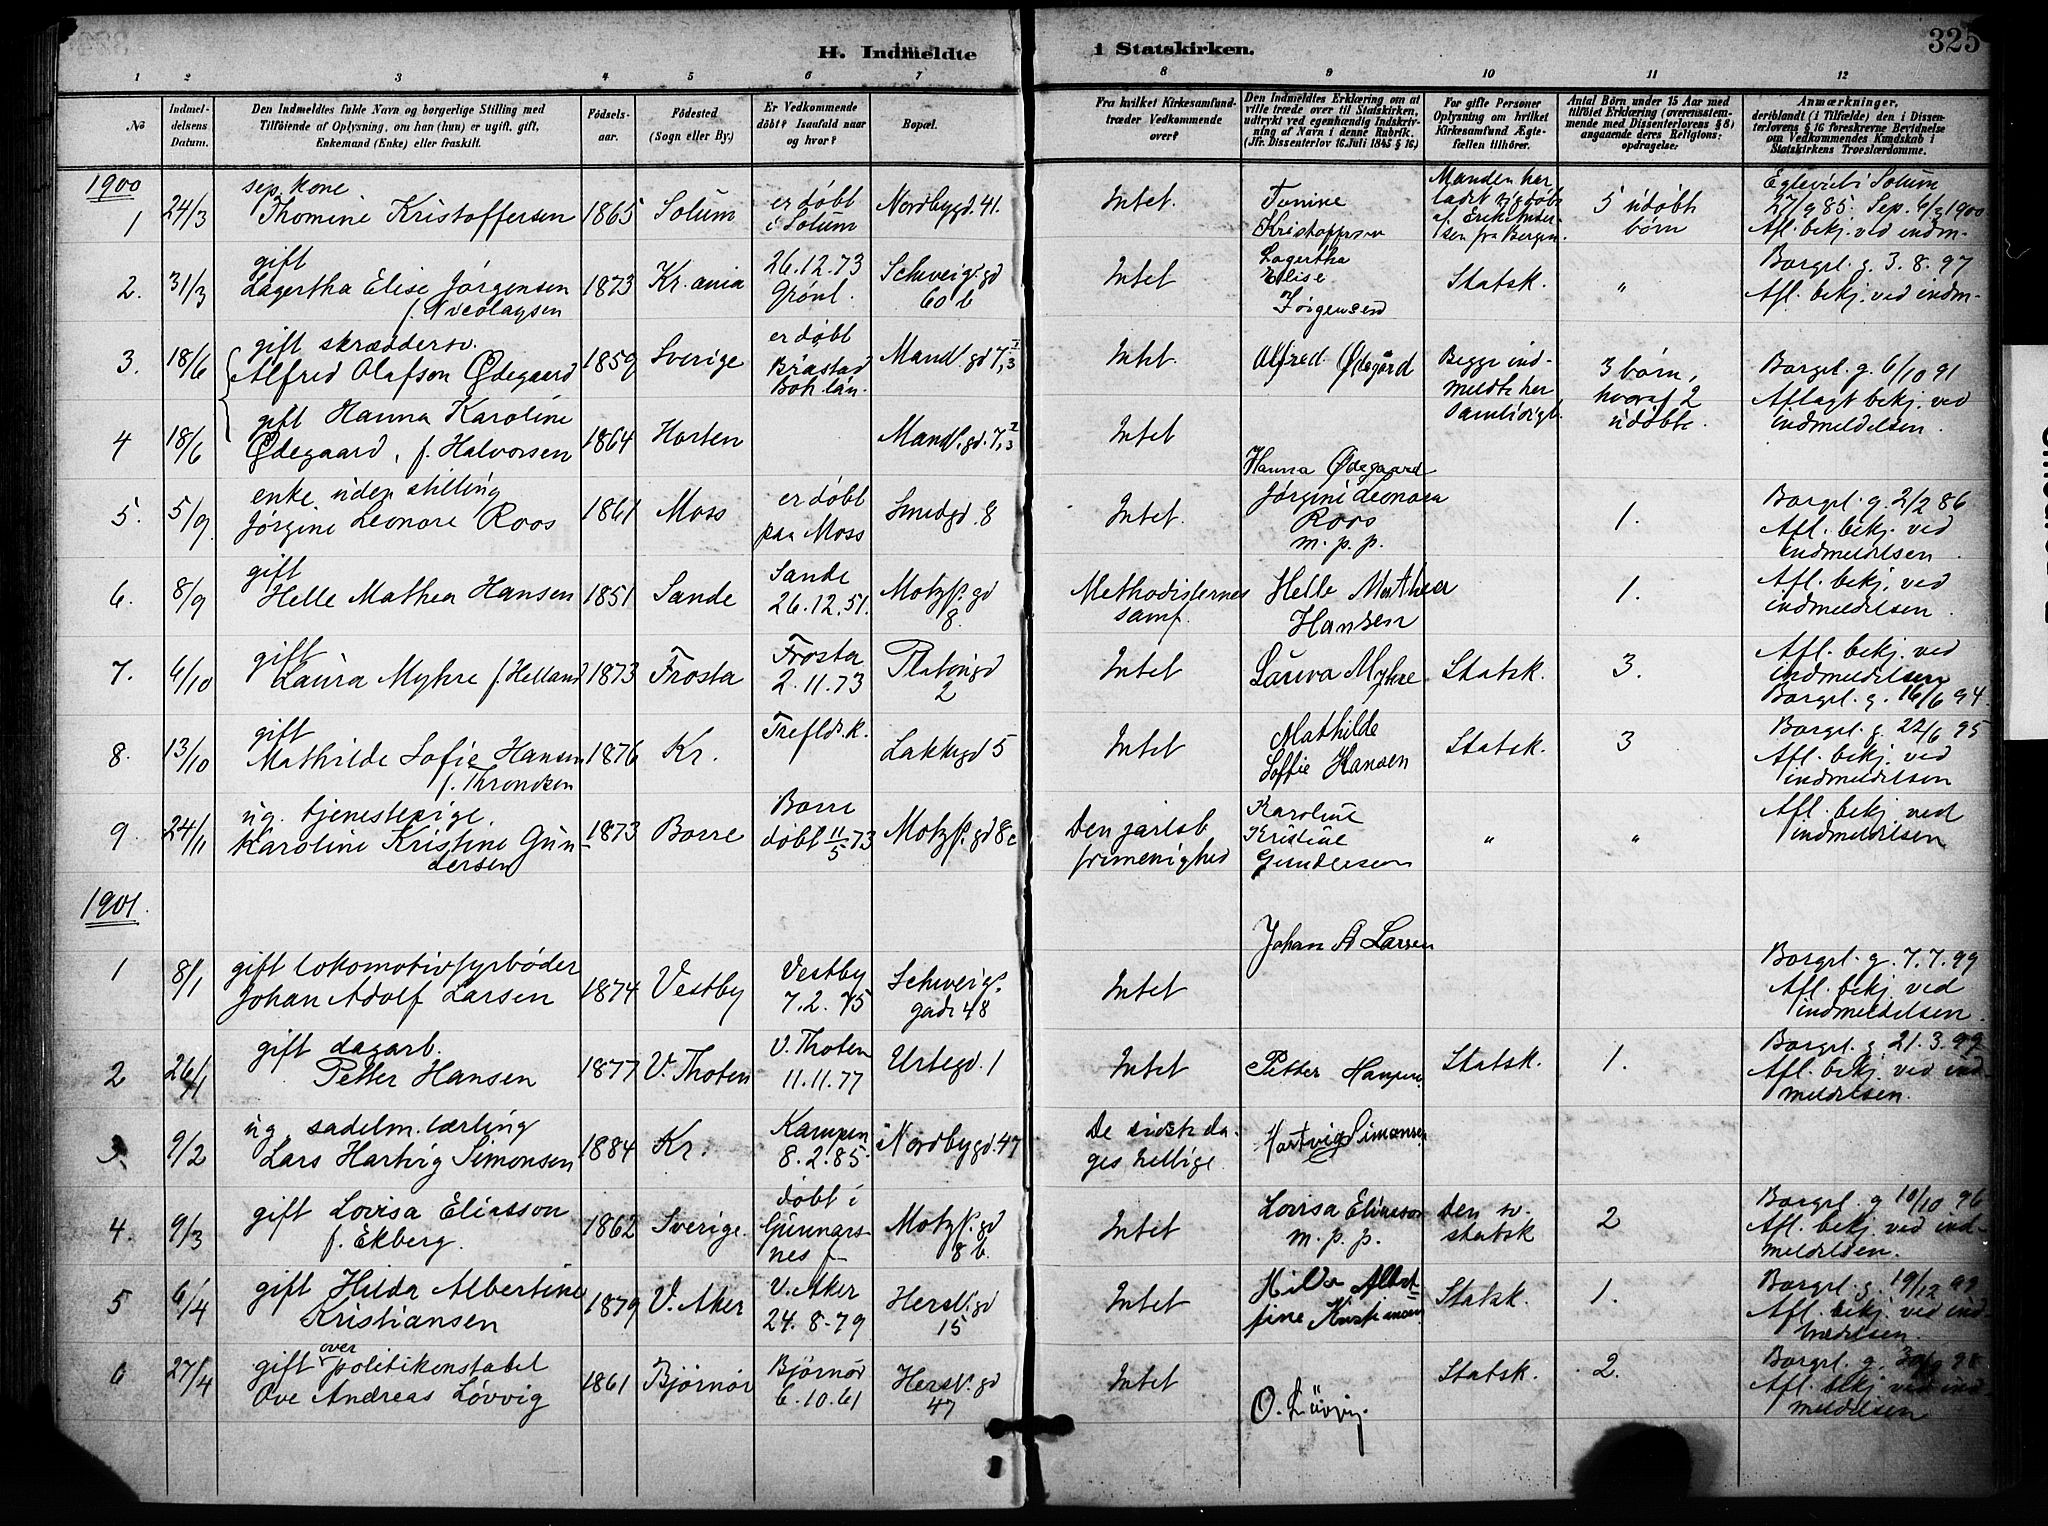 325
H. Indmeldte i Statskirken.
1 2 3 4 5 6 7 8 9 10 11 12
No
Indmel-
delsens
Datum.
Den Indmeldtes fulde Navn og borgerlige Stilling med
Tilføiende af Oplysning, om han (hun) er ugift, gift,
Enkemand (Enke) eller fraskilt.
Fødsels-
aar.
Fødested
(Sogn eller By.)
Er Vedkommende
døbt? Isaafald naar
og hvor?
Bopæl.
Fra hvilket Kirkesamfund
træder Vedkommende
over?
Den Indmeldtes Erklæring om at
ville træde over til Statskirken,
udtrykt ved egenhændig Indskriv-
ning af Navn i denne Rubrik.
(Jfr. Dissenterlov 16 Juli 1845 § 16.)
For gifte Personer
Oplysning om hvilket
Kirkesamfund Ægte-
fællen tilhører.
Antal Børn under 15 Aar med
tilføiet Erklæring (overensstem-
mende med Dissenterlovens § 8)
angaaende deres Religions-
opdragelse:
Anmærkninger,
deriblandt (i Tilfælde) den i Dissen-
terlovens § 16 foreskrevne Bevidnelse
om Vedkommendes Kundskab i
Statskirkens Troeslærdomme.
1900
1
24/3
sep. kone
Thomine Kristoffersen
1865
Solum
er døbt
i Solum
Nordbygd. 41.
Intet.
Tomine
Kristoffersen
Manden har
ladet sig døbe
af Erik Ander-
sen fra Bergen.
5 udøbte
børn
Egteviet i Solum
27/9 85. Sep. 6/3 1900
Afl. bekj. ved indm-
2.
31/3
gift
Lagertha Elise Jørgensen
f. Nicolaysen
1873
Kr.ania
26.12.73
Grønl.
Schweig.gd
60 b
Intet
Lagertha
Elise
Jørgensen
Statsk.
"
Borgerl. g. 3.8.97
Afl. bekj. ved indm-
3.
18/6
gift skrædersv.
Alfred Olafson Ødegaard
1859
Sverige
er døbt
Bråstad
Boh.län.
Mandl.gd 7, 3 I
Intet.
Alfred Ødegård
Begge ind-
meldte her
samtidigt.
3 børn,
hvoraf 2
udøbte.
Borgerl. g. 6/10 91
Aflagt bekj. ved
indmeldelsen.
4
18/6
gift Hanna Karoline
Ødegaard, f. Halvorsen
1864
Horten
Mandl.gd. 7, 3 I
Intet
Hanna Ødegaard
5.
5/9
enke uden stilling
Jørgine Leonore Roos
1861
Moss
er døbt
paa Moss
Smedgd. 8
Intet.
Jørgine Leonora
Roos
m. p. p.
1.
Borgerl. g. 2/2 86
Afl. bekj. ved
indmeldelsen
6.
8/9
gift
Helle Mathea Hansen
1851
Sande
Sande
26.12.51.
Motzf. gd
8.
Methodisternes
samf.
Helle Mathea
Hansen
1.
Afl. bekj. ved
indmeldelsen.
7.
6/10
gift
Laura Myhre f. Helland
1873
Frosta
Frosta
2.11.73
Platougd
2
Intet
Laura Myhre
Statsk.
3.
Afl. bekj. ved
indmeldelsen
Borgerl. g. 16/6 94.
8.
13/10
gift
Mathilde Sofie Hansen
f. Throndsen
1876
Kr.
Trefld.k.
Lakkegd 5
Intet
Mathilde
Soffie Hansen
Statsk.
3
Borgerl. g. 22/6 95
Afl. bekj. ved
indmeldelsen
9.
24/11
ug. tjenestepige
Karoline Kristine Gun
dersen
1873
Borre
Borre
døbt 11/5 73
Motzf. gd 8c
Den jarlsb
frimenighed
Karoline
Kristine
Gundersen
"
"
Afl. bekj. ved
indmeldelsen
1901.
1
8/1
gift lokomotivfyrbøder
Johan Adolf Larsen
1874
Vestby
Vestby
7.2.75
Schweig.
gade 48
Intet
Johan A Larsen
Borgerl. g. 7.7.99
Afl. bekj. ved
indmeldelsen.
2
26/1
gift dagarb.
Petter Hansen
1877
V. Thoten
V. Thoten
11.11.77
Urtegd. 1
Intet
Petter Hansen
Statsk.
1.
Borgerl. g. 21.3.99
Afl. bekj. ved ind-
meldelsen.
3.
9/2
ug. sadelm. lærling
Lars Hartvig Simonsen
1884
Kr.
Kampen
8.2.85.
Nordbygd. 47
De sidste da-
ges hellige.
Hartvig Simonsen
4.
9/3
gift Lovisa Eliasson
f. Ekberg.
1862
Sverige.
døbt i
Gunnars-
nes f
Motzf. gd
8 b.
Intet
Lovisa Eliasson
m. p. p.
Den sv.
statsk
2
Borgerl. g 10/10 96
Afl. bekj. ved ind-
meldelsen.
5
6/4
gift Hilda Albertine
Kristiansen
1879
V. Aker
V. Aker
24.8.79
Hersl.gd
15
Intet
Hilda Albert
tine Kristiansen
Statsk.
1.
Borgerl. g. 19/12 99
Afl. bekj. ved ind
meldelsen.
6
27/4
gift over politikonstabel
Ove Andreas Løvvig
1861
Bjørnør
Bjørnør
6.10.61
Hersl. gd
47
Intet
O. Løvvig.
Statsk.
2.
Borgerl. g. 98
Afl. bekj. ved ind
meldelsen